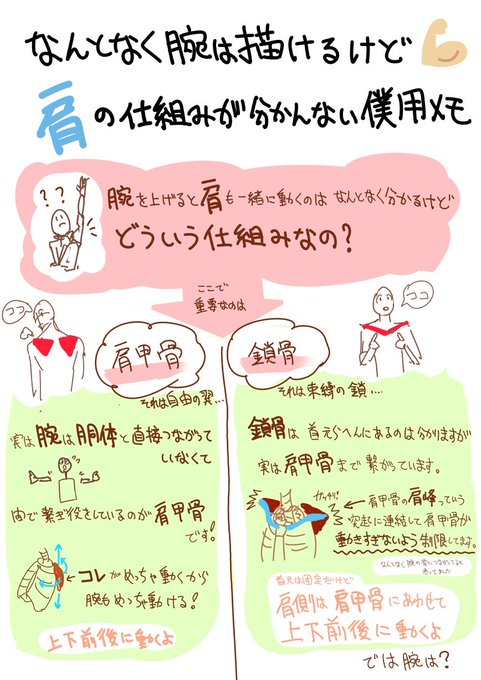 なんとなく腕は描けるけど
肩の仕組みが分かんない僕用メモ
??
腕を上げると肩も一緒に動くのは なんとなく分かるけど
どういう仕組みなの?
ここで
重要なのは
ココ
肩甲骨
それは自由の翼…
実は腕は胴体と直接つながって
いなくて
間で繋ぎ役をしているのが肩甲骨
です!
←コレがめっちゃ動くから
腕もめっちゃ動ける!
上下前後に動くよ
ココ
鎖骨
それは束縛の鎖…
鎖骨は首元らへんにあるのは分かりますが
実は肩甲骨まで繋がっています。
ガッチリ!
←肩甲骨の肩峰っていう
突起に連結して肩甲骨が
動きすぎないよう制限してます。
なんとなく腕の骨につながってると
思ってました
首元は固定だけど
肩側は肩甲骨にあわせて
上下前後に動くよ
では腕は?